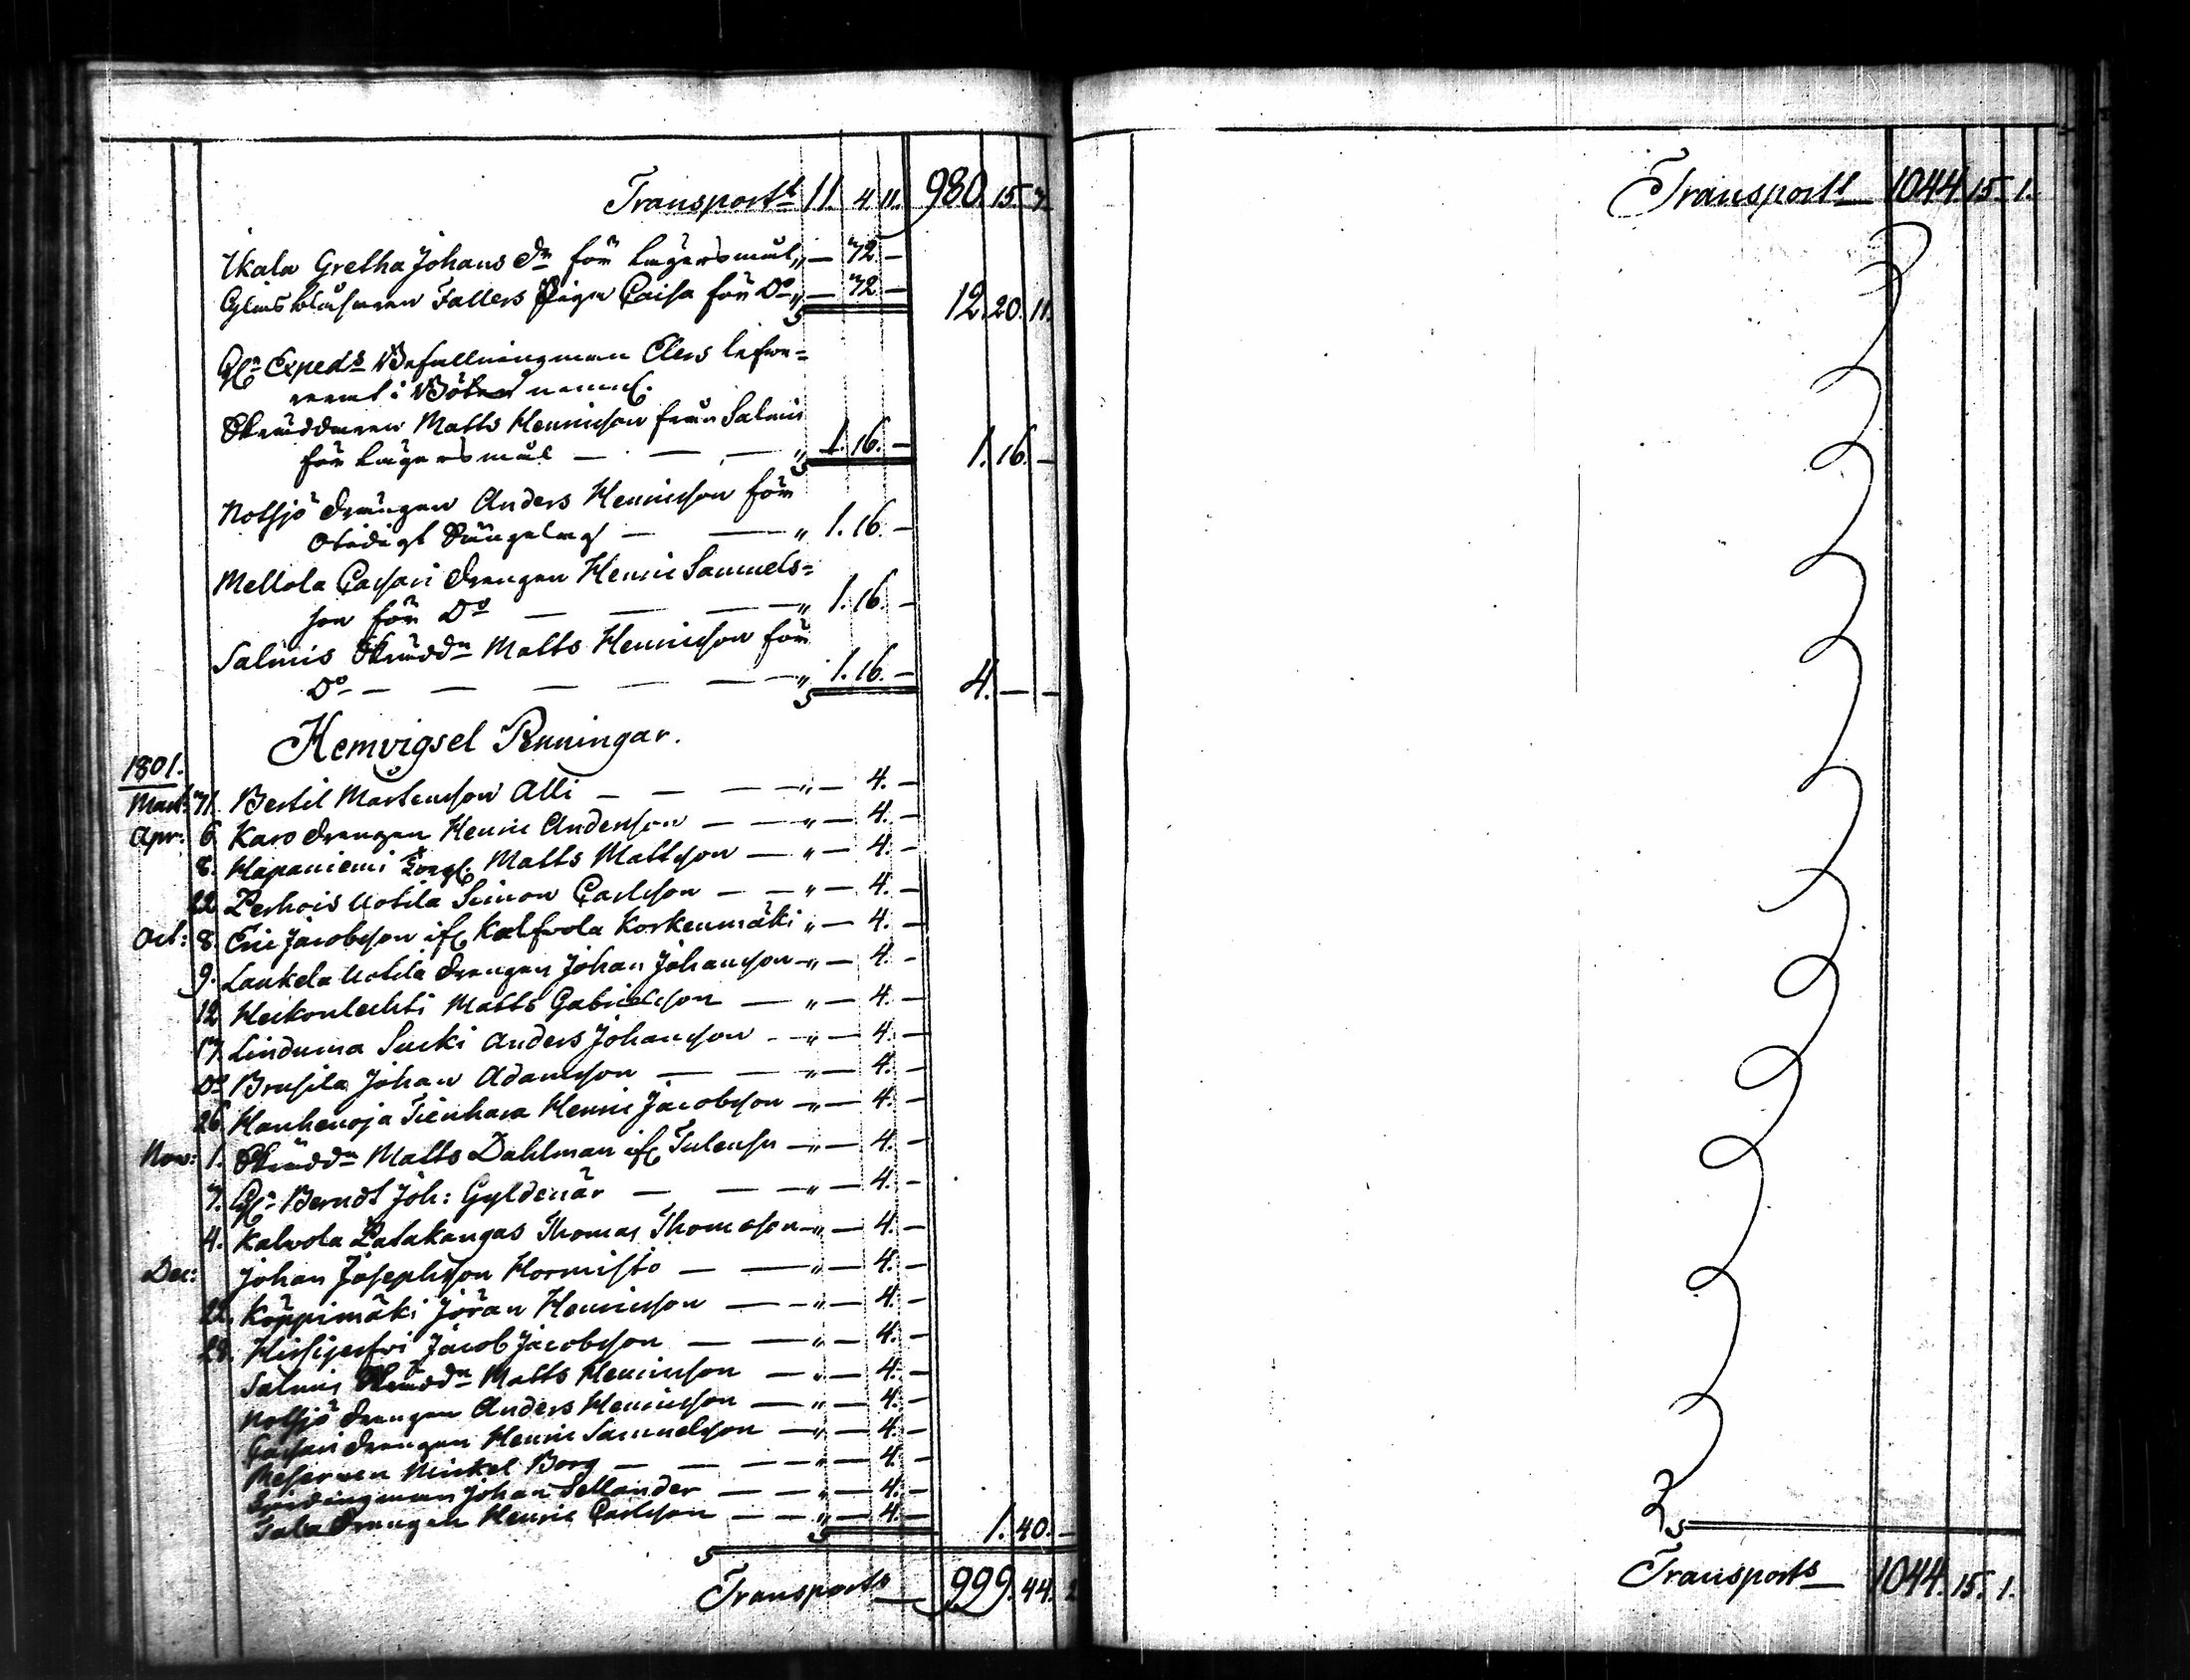 Transport 11. 4 11. 980. 15. 7.
Ikala Gretha Johans dr för Lägersmål „ — 72 —
Glasblåsaren Fallers Piga Caisa för Do „ — 72 — 12. 20. 11.
Exped: Befallningsman Elers lefve=
rerat i Böter neml.
Skräddaren Matts Henricson från Salmis
för Lägersmål — — — „ 1. 16. — 1. 16. —
Notsjö drängen Anders Henricson för
otidigt Sängelag — — „ 1. 16. —
Mellola drengen Henric Samuels=
son för Do — — — „ 1. 16. —
Salmis Skrädd: Matts Henricson för
Do — — — — — „ 1. 16. — 4. — —
Hemvigsel Penningar.
1801.
Mart: Bertil Mårtensson Alli — — — „ — 4. —
Apr: 6. Karo drengen Henric Andersson — — „ — 4. —
8. Hapaniemi Torp. Matts Mattsson — „ — 4. —
22. Perhois Uotila Simon Carlsson — — „ — 4. —
Oct: 8. Eric Jacobsson if. Kalfvola Korkeumäki „ — 4. —
9. Laukela Uotila drengen Johan Johansson — „ — 4. —
12. Matts Gabrielsson — „ — 4. —
17. Linduma Sucki Anders Johansson — „ — 4. —
Do Brusila Johan Adamsson — — „ — 4. —
26. Hanhenoja Tienhara Henric Jacobsson — „ — 4. —
Nov: 1. Skrädd: Matts Dahlman if. Tulensu — „ — 4. —
7. Berndt Joh: Gyldenär — — — „ — 4. —
4. Kalvola Patakangas Thomas Thomasson — „ — 4. —
Dec: Johan Josephsson Hormisto — — „ — 4. —
22. Köppimäki Jöran Henricsson — — „ — 4. —
28. Hirsijerfvi Jacob Jacobsson — — „ — 4. —
Salmis Skrädd: Matts Henricsson — „ — 4. —
Notsjö drengen Anders Henricsson — „ — 4. —
drengen Henric Samuelsson — „ — 4. —
Michel Borg — — — „ — 4. —
Johan Sellander — — „ — 4. —
Tala drengen Henric Carlsson — — „ — 4. — 1. 40. —
Transport 999. 44.
Transport 1044. 15. 1.
Transport 1044. 15. 1.